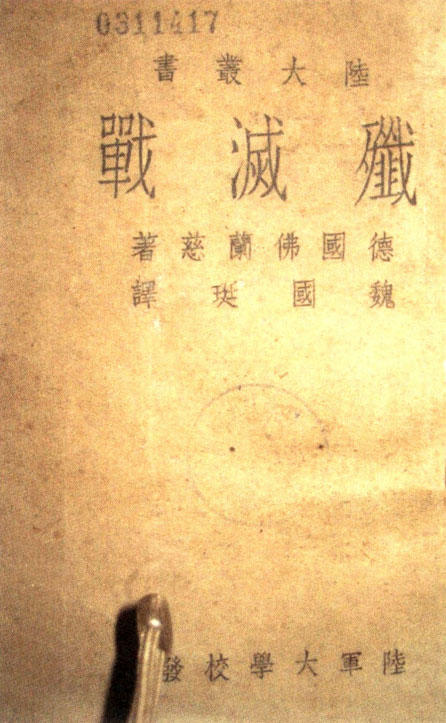 0311417
陸大叢書
殲滅戰
德國佛蘭慈著
魏國珽譯
陸軍大學校發